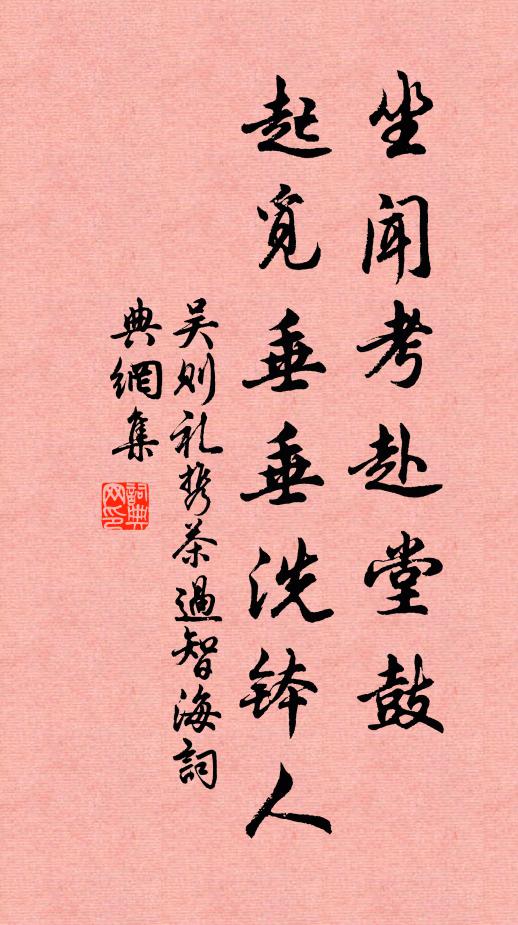 坐闻考赴堂鼓
起觅垂垂洗钵人
吴则礼携茶過智海詞
典網集
詞典网印